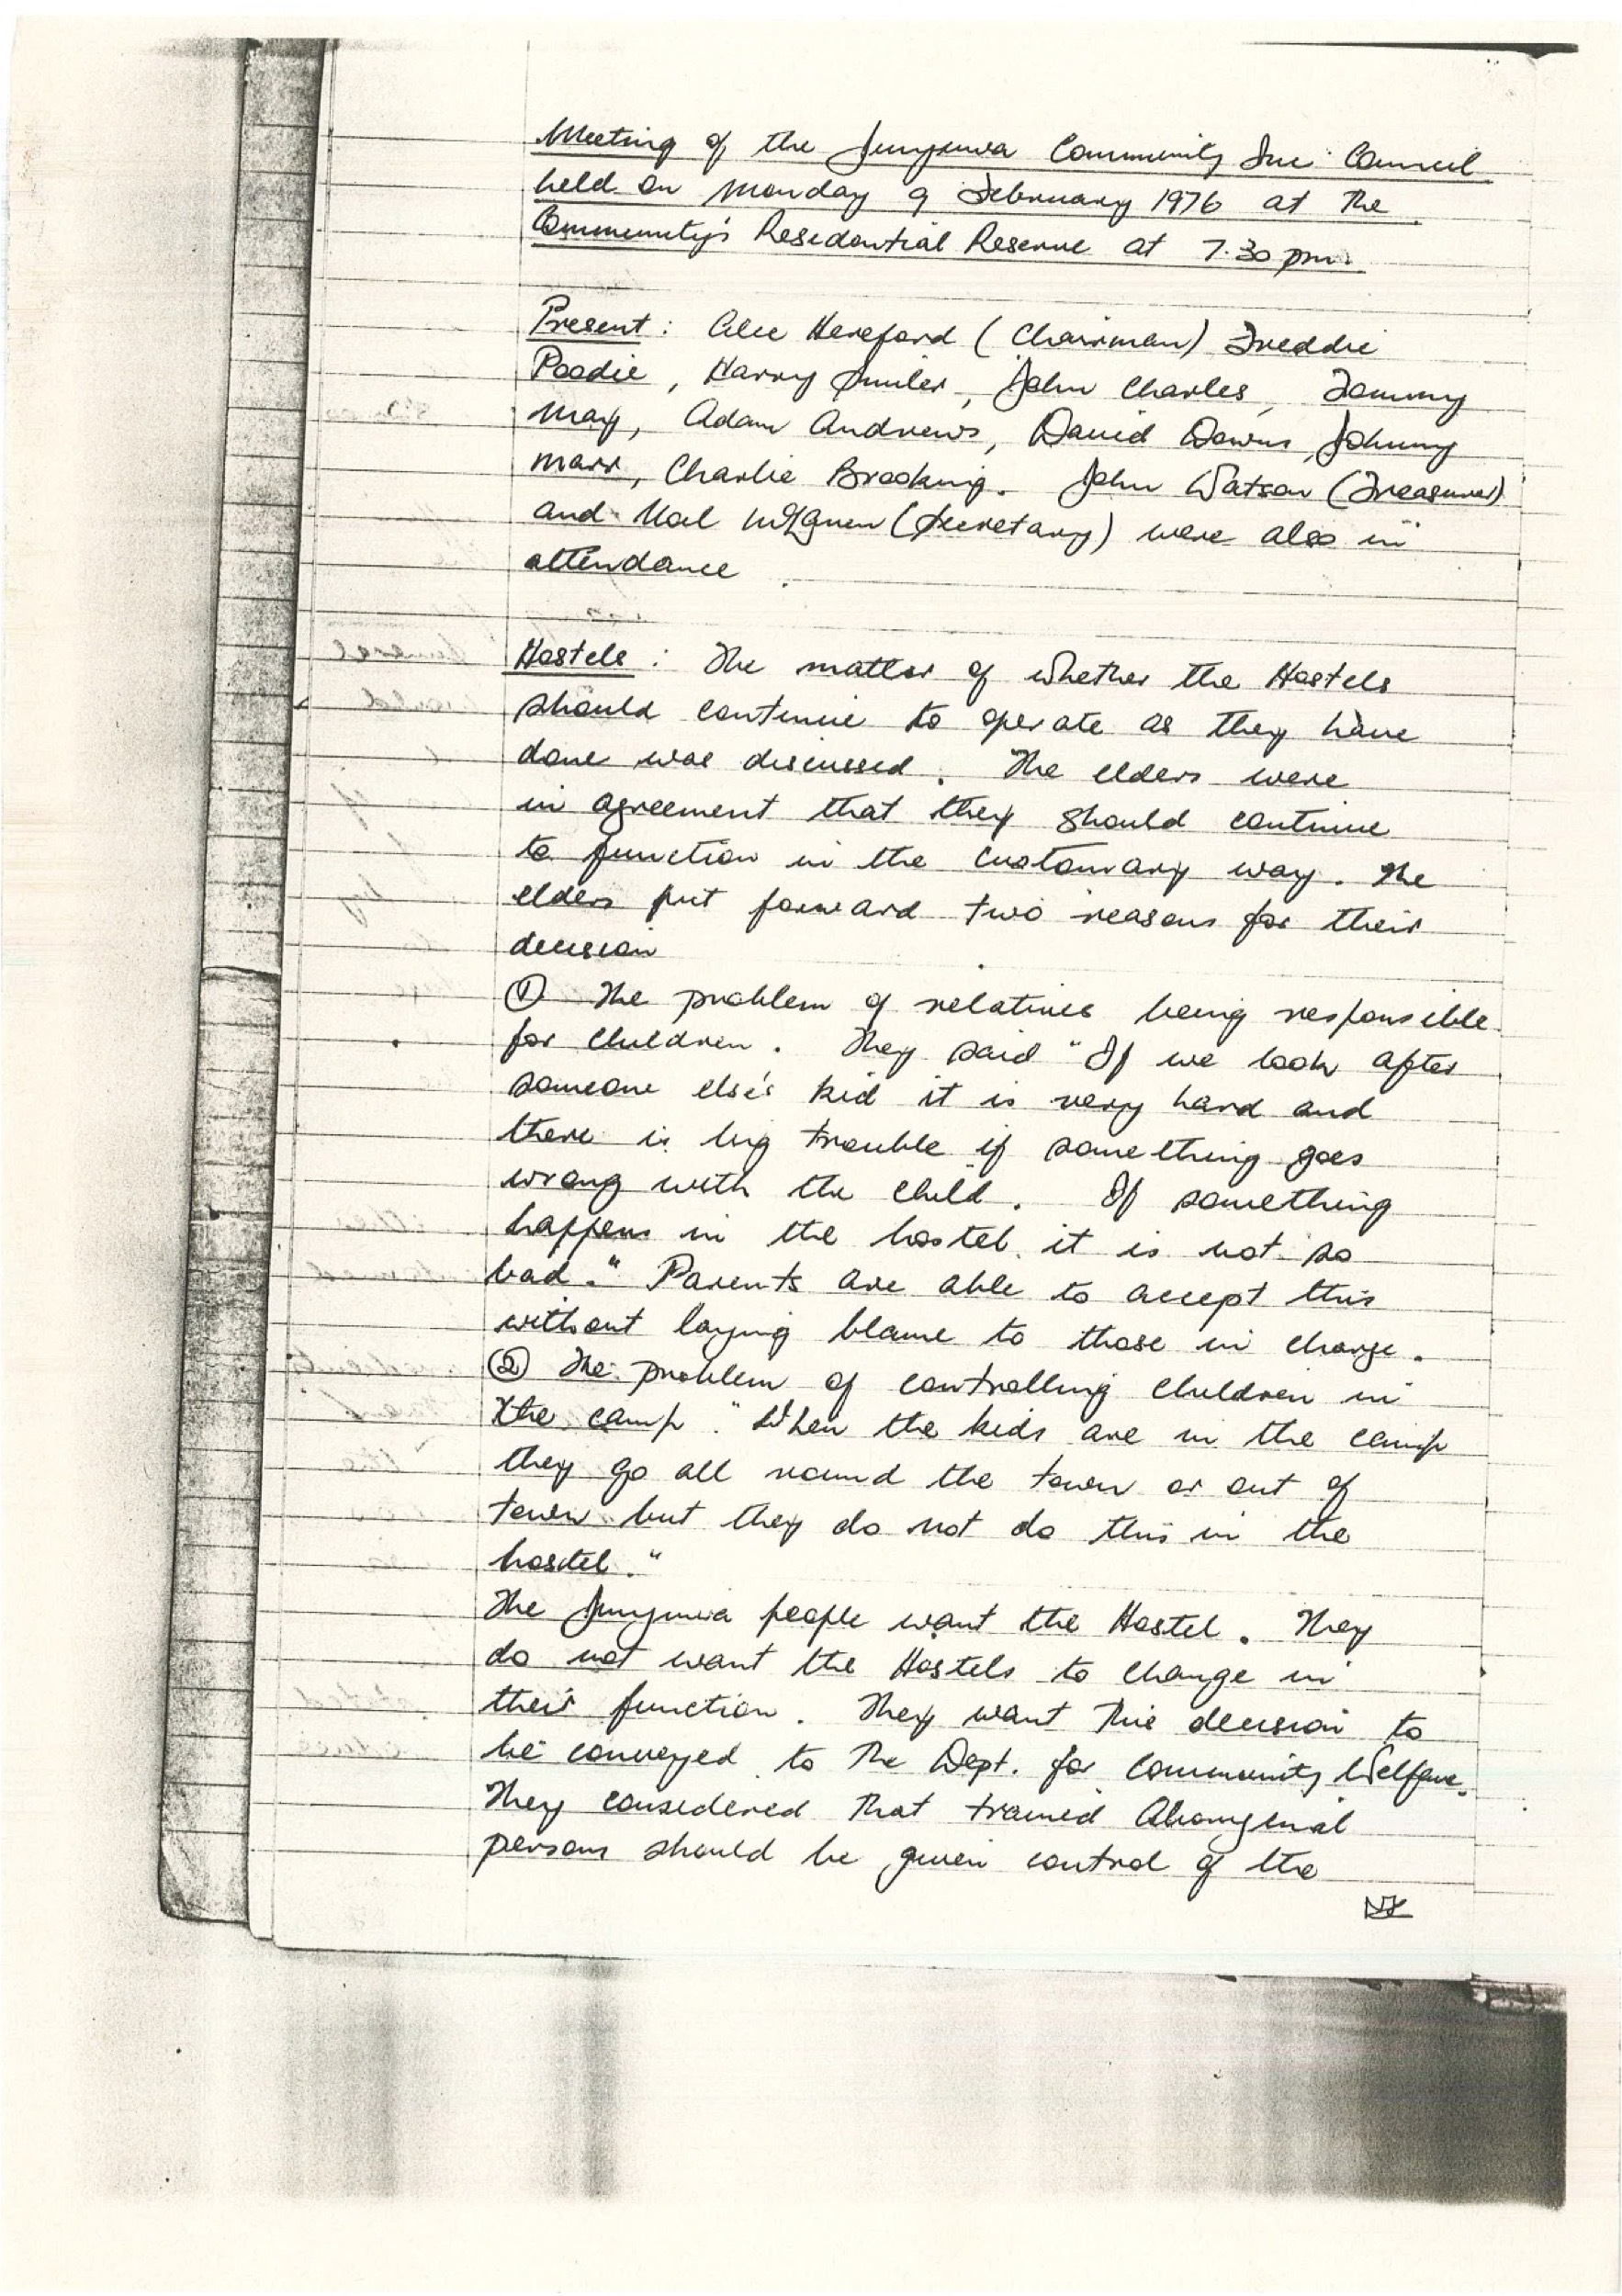 Meeting of the Junjuwa Community Inc Council
held on Monday 9 February 1976 at the
Community's Residential Reserve at 7.30 pm.
Present: Alec Hereford (Chairman) Freddie
Poodie, Harry Smiler, John Charles, Tommy
May, Adam Andrews, David Downs, Johnny
Marr, Charlie Brooking. John Watson (Treasurer)
and (Secretary) were also in
attendance
Hostels: The matter of whether the Hostels
should continue to operate as they have
done was discussed. The elders were
in agreement that they should continue
to function in the customary way. The
elders put forward two reasons for their
decision
① The problem of relatives being responsible
for children. They said "If we look after
someone else's kid it is very hard and
there is big trouble if something goes
wrong with the child. If something
happens in the hostel it is not so
bad." Parents are able to accept this
without laying blame to those in charge.
② The problem of controlling children in
the camp. "When the kids are in the camp
they go all round the town or out of
town but they do not do this in the
hostel."
The Junjuwa people want the Hostel. They
do not want the Hostels to change in
their function. They want this decision to
be conveyed to the Dept. for Community Welfare.
They considered that trained Aboriginal
persons should be given control of the